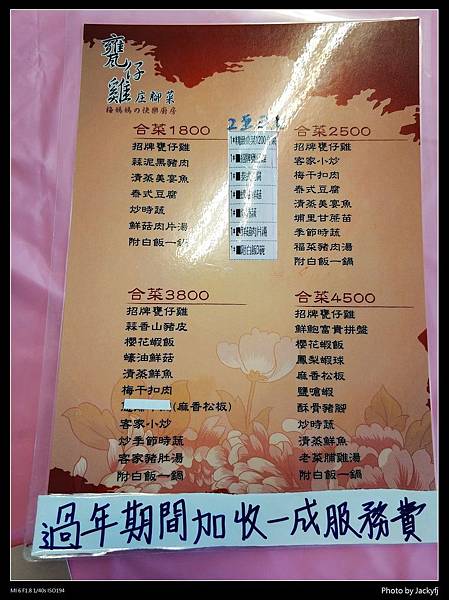 甕仔雞
庄腳菜
梅媽媽の快樂廚房
合菜1800
招牌甕仔雞
蒜泥黑豬肉
清蒸美宴魚
泰式豆腐
炒時蔬
鮮菇肉片湯
附白飯一鍋
合菜2500
招牌甕仔雞
客家小炒
梅干扣肉
泰式豆腐
清蒸美宴魚
埔里甘蔗苗
季節時蔬
福菜豬肉湯
附白飯一鍋
合菜3800
招牌甕仔雞
蒜香山豬皮
櫻花蝦飯
蠔油鮮菇
清蒸鮮魚
梅干扣肉
(麻香松板)
客家小炒
炒季節時蔬
客家豬肚湯
附白飯一鍋
合菜4500
招牌甕仔雞
鮮鮑富貴拼盤
櫻花蝦飯
鳳梨蝦球
麻香松板
鹽嗆蝦
酥骨豬腳
炒時蔬
清蒸鮮魚
老菜脯雞湯
附白飯一鍋
過年期間加收一成服務費
MI 6 F1.8 1/40s ISO194
Photo by Jackyfj